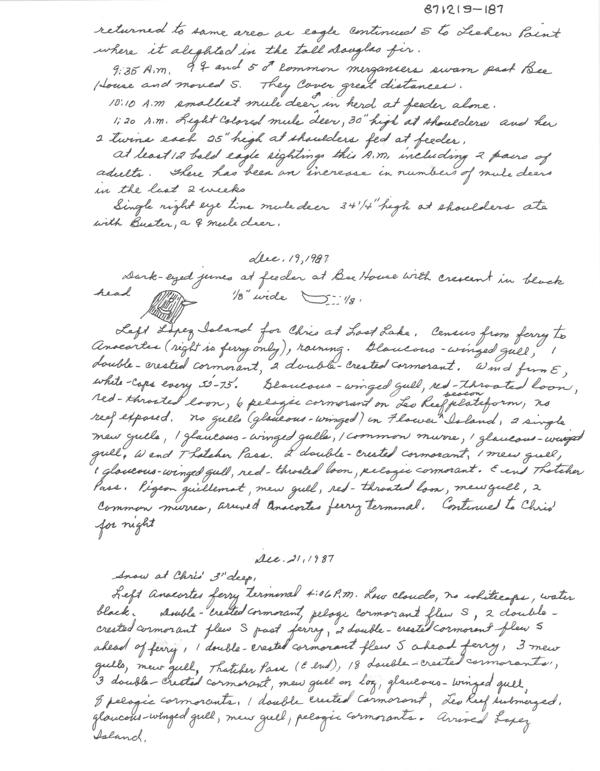 871219-187
returned to same area as eagle continued S to Lichen Point
where it alighted in the tall Douglas fir.
9:35 A.M. 9 ♀ and 5 ♂ Common mergansers swam past Bee
House and moved S. They cover great distances.
10:10 A.M smallest mule deer ♂ in herd at feeder alone.
1:20 A.M. Light colored mule deer, 30" high at shoulders and her
2 twins each 25" high at shoulders fed at feeder.
At least 12 bald eagle sightings this A.M. including 2 pairs of
adults. There has been an increase in numbers of mule deers
in the last 2 weeks
Single right eye tine mule deer 34 1/4" high at shoulders ate
with Buster, a ♀ mule deer.
Dec. 19, 1987
Dark-eyed junco at feeder at Bee House with crescent in black
head 1/8" wide 1/8.
Left Lopez Island for Chris at Lost Lake. Census from ferry to
Anacortes (right is ferry only), raining. Glaucous-winged gull, 1
double-crested cormorant, 2 double-crested cormorant. Wind from E,
white-caps every 50'-75'. Glaucous-winged gull, red-throated loon,
red-throated loon, 6 pelagic cormorant on Leo Reef platform, no
reef exposed. no gulls (glaucous-winged) in Flower Island, 2 single
mew gulls, 1 glaucous-winged gulls, 1 common murre, 1 glaucous-winged
gull, W end Thatcher Pass. 2 double-crested cormorant, 1 mew gull,
1 glaucous-winged gull, red-throated loon, pelagic cormorant. E end Thatcher
Pass. Pigeon guillemot, mew gull, red-throated loon, mew gull, 2
common murres, arrived Anacortes ferry terminal. Continued to Chris'
for night
Dec. 21, 1987
Snow at Chris' 3" deep,
Left Anacortes ferry terminal 4:06 P.M. Low clouds, no whitecaps, water
black. Double-crested cormorant, pelagic cormorant flew S, 2 double-
crested cormorant flew S past ferry, 2 double-crested cormorant flew S
ahead of ferry, 1 double-crested cormorant flew S ahead ferry, 3 mew
gulls, mew gull, Thatcher Pass (E end), 18 double-crested cormorants,
3 double-crested cormorant, mew gull on log, glaucous-winged gull,
8 pelagic cormorants. 1 double crested cormorant, Leo Reef submerged.
glaucous-winged gull, mew gull, pelagic cormorants. Arrived Lopez
Island.